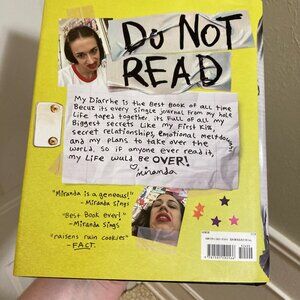 DO NOT
READ
My Diarrhe is the Best Book of all time
Becuz it's every single journal from my hole
Life taped together. it's full of all my
Biggest secrets Like my First Kiz,
secret relationships, emotional meltdowns
and my plans to take over the
world. So if anyone ever read it,
my Life would be OVER!
miranda
"Miranda is a geneous!"
- Miranda Sings
"Best Book ever!"
- Miranda Sings
"raisens ruin cookies"
- FACT.